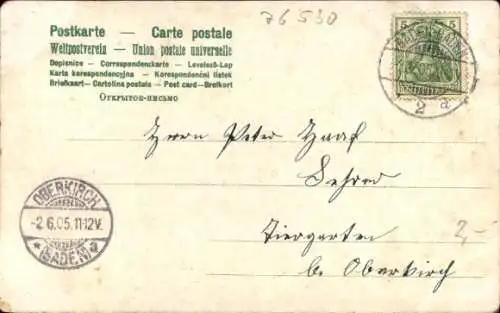 76530
Postkarte — Carte postale
Weltpostverein — Union postale universelle
Dopisnice - Correspondenzkarte - Levelező-Lap
Karta korespondencyjna - Korespondenční lístek
Briefkaart - Cartolina postale - Post card - Brefkort
Открытое письмо
5 5
2 a
Herrn Peter Haas
Tiergarten
b. Oberkirch
2,-
OBERKIRCH
-2.6.05.11-12V.
* (BADEN) a